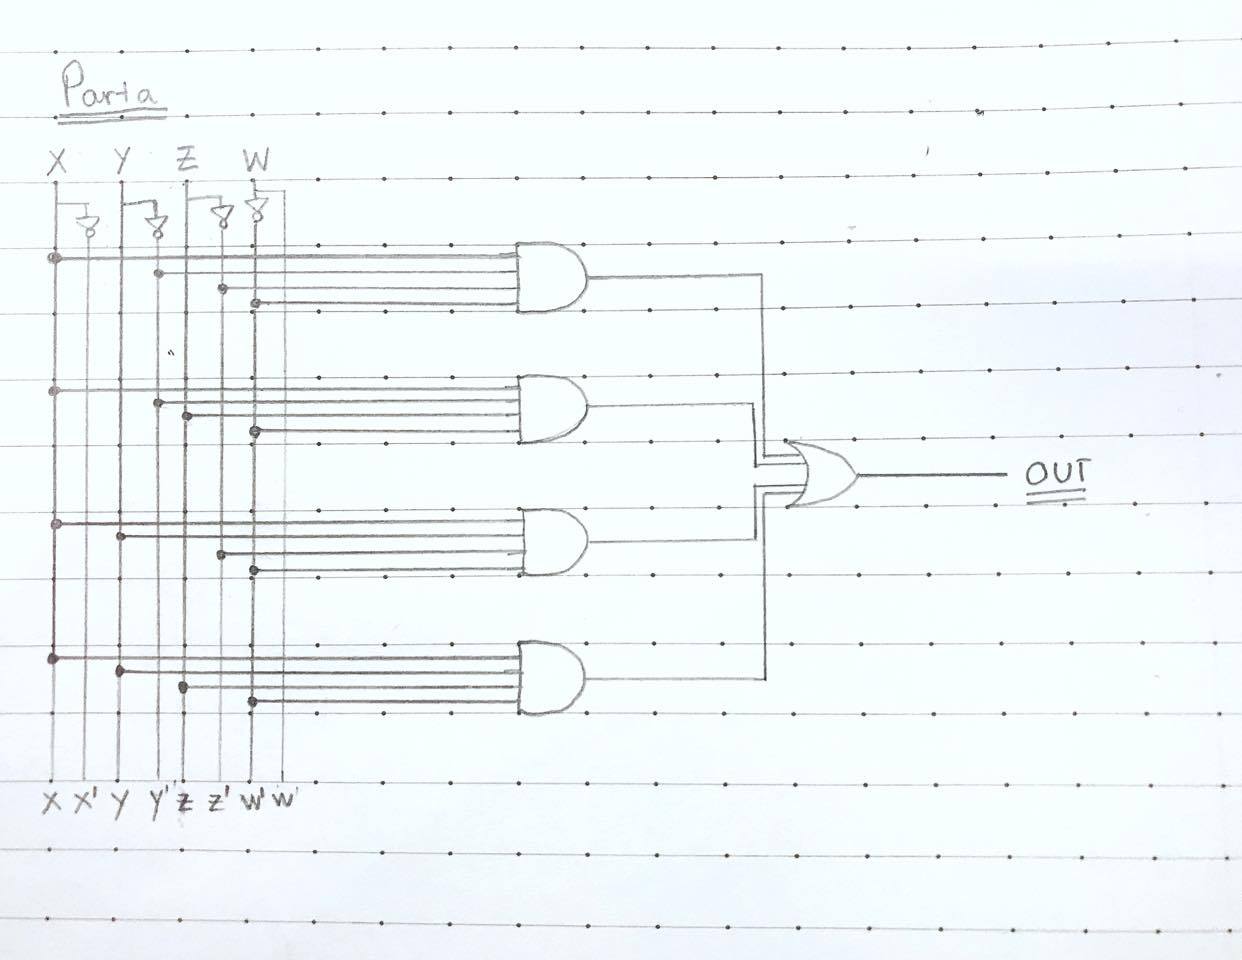 Part a
X Y Z W
OUT
X X' Y Y' Z Z' W' W